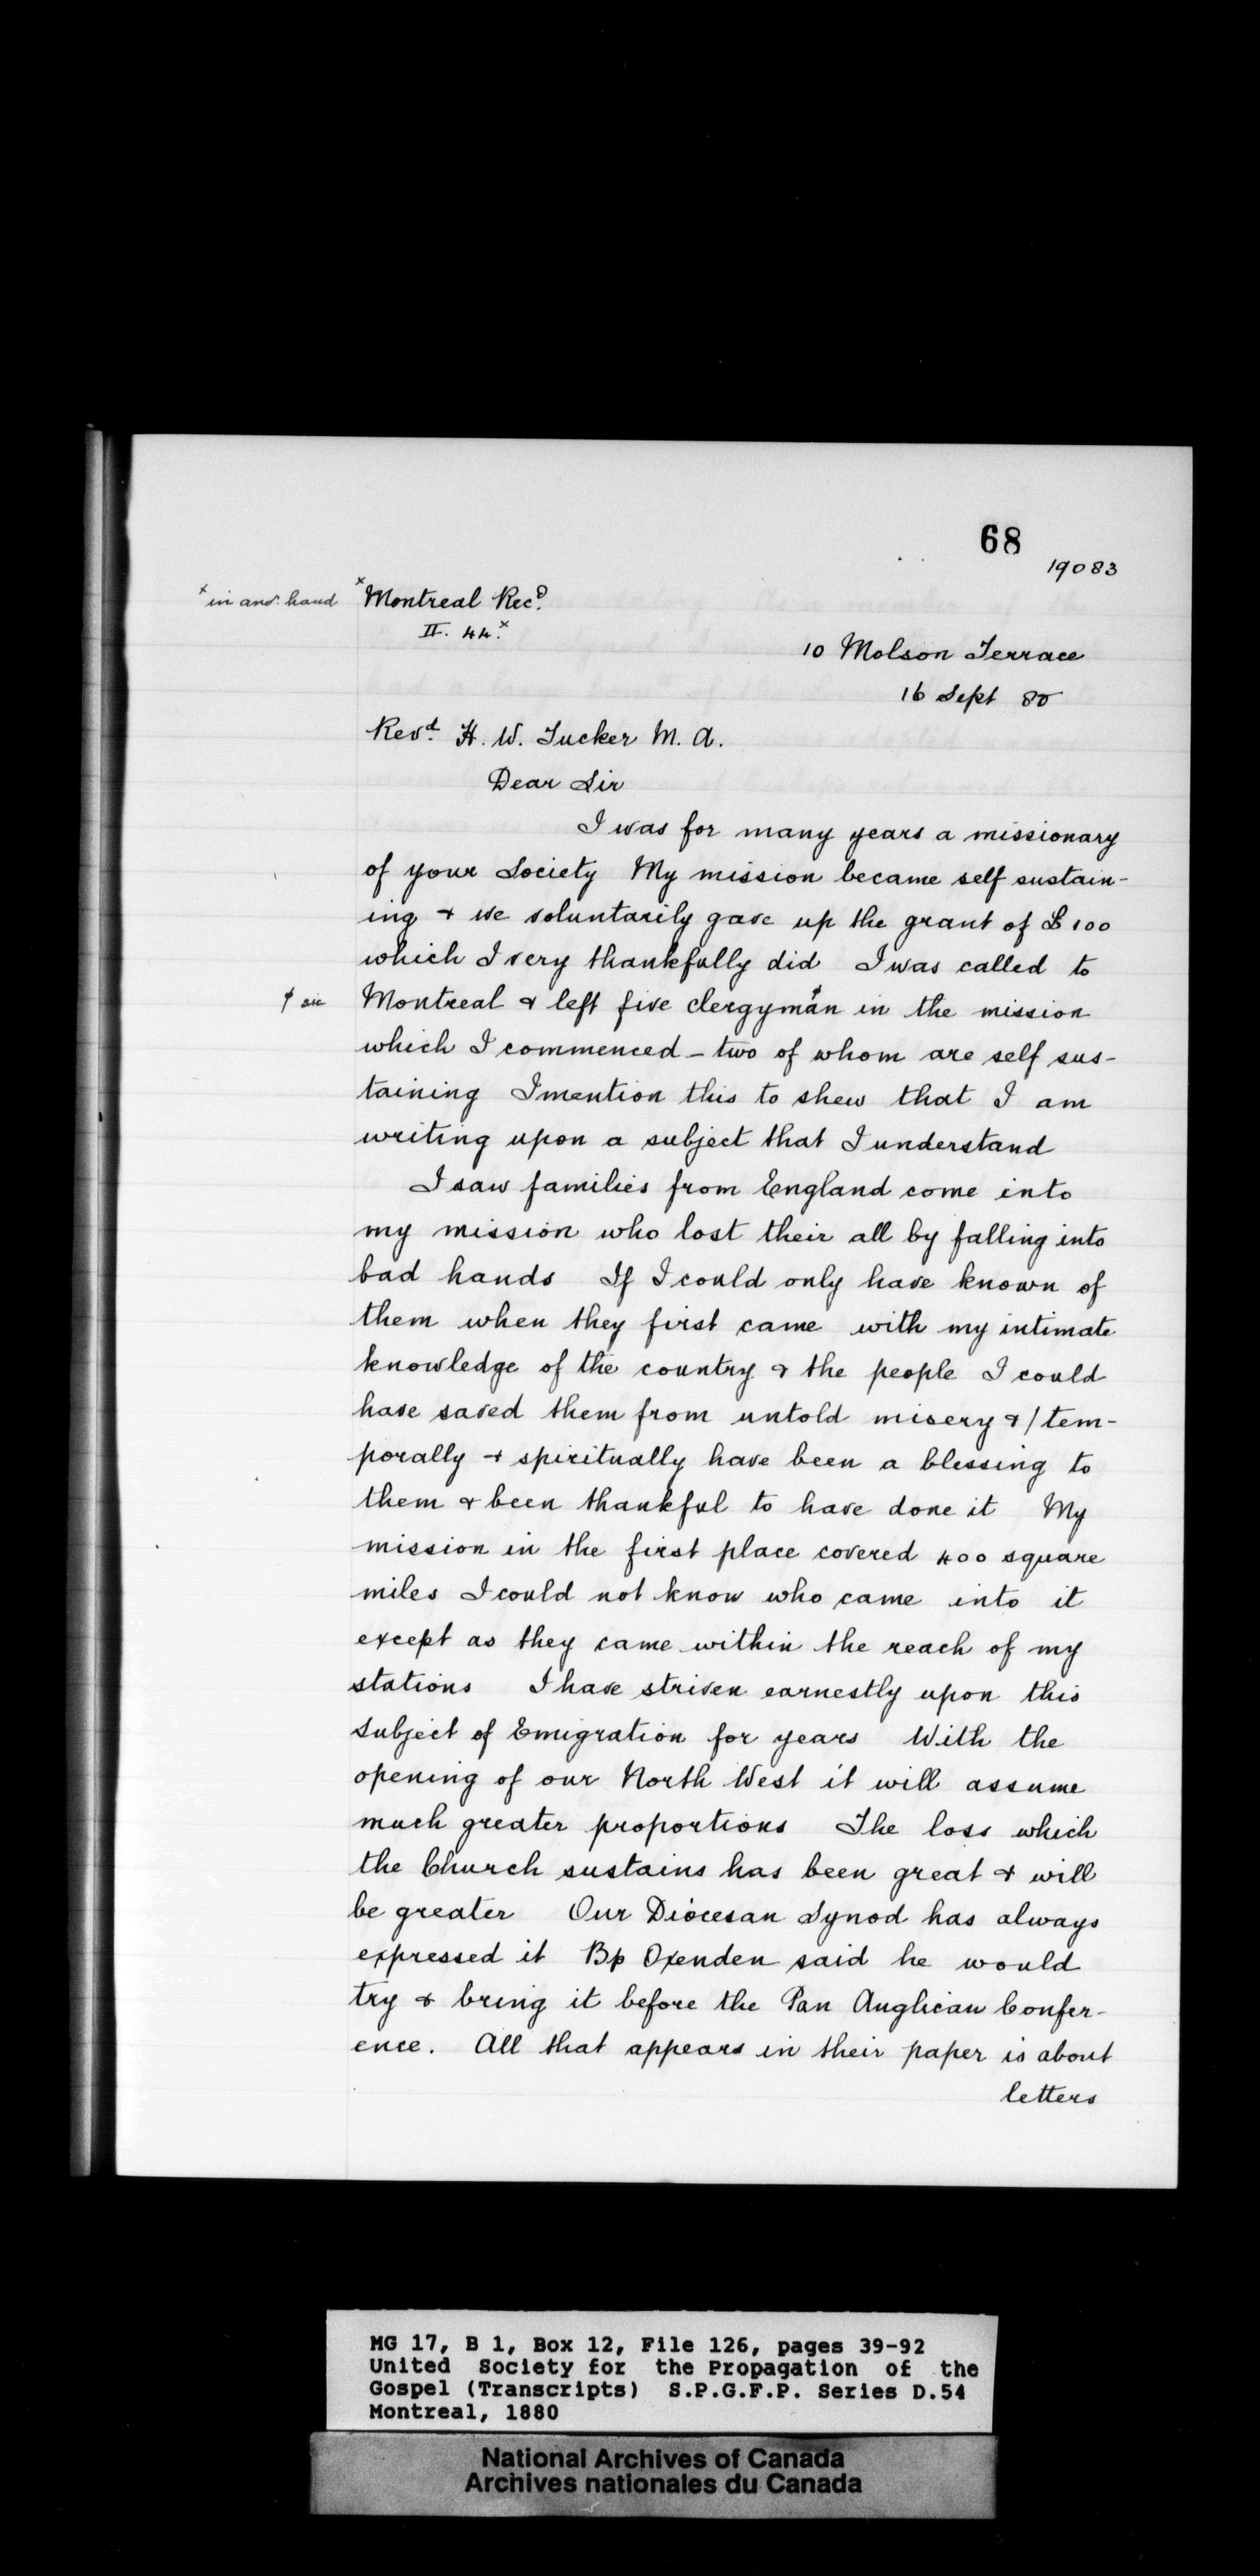 68
19083
x in anr. hand
x Montreal Recd.
II. 44. x
10 Molson Terrace
16 Sept 80
Revd. H. W. Tucker M. A.
Dear Sir
I was for many years a missionary
of your Society My mission became self sustain-
ing & we voluntarily gave up the grant of £100
which I very thankfully did I was called to
ɫ sic
Montreal & left five clergymanɫ in the mission
which I commenced - two of whom are self sus-
taining I mention this to shew that I am
writing upon a subject that I understand
I saw families from England come into
my mission who lost their all by falling into
bad hands If I could only have known of
them when they first came with my intimate
knowledge of the country & the people I could
have saved them from untold misery & / tem-
porally & spiritually have been a blessing to
them & been thankful to have done it My
mission in the first place covered 400 square
miles I could not know who came into it
except as they came within the reach of my
stations I have striven earnestly upon this
subject of Emigration for years With the
opening of our North West it will assume
much greater proportions The loss which
the Church sustains has been great & will
be greater Our Diocesan Synod has always
expressed it Bp Oxenden said he would
try & bring it before the Pan Anglican Confer-
ence. All that appears in their paper is about
letters
MG 17, B 1, Box 12, File 126, pages 39-92
United Society for the Propagation of the
Gospel (Transcripts) S.P.G.F.P. Series D.54
Montreal, 1880
National Archives of Canada
Archives nationales du Canada